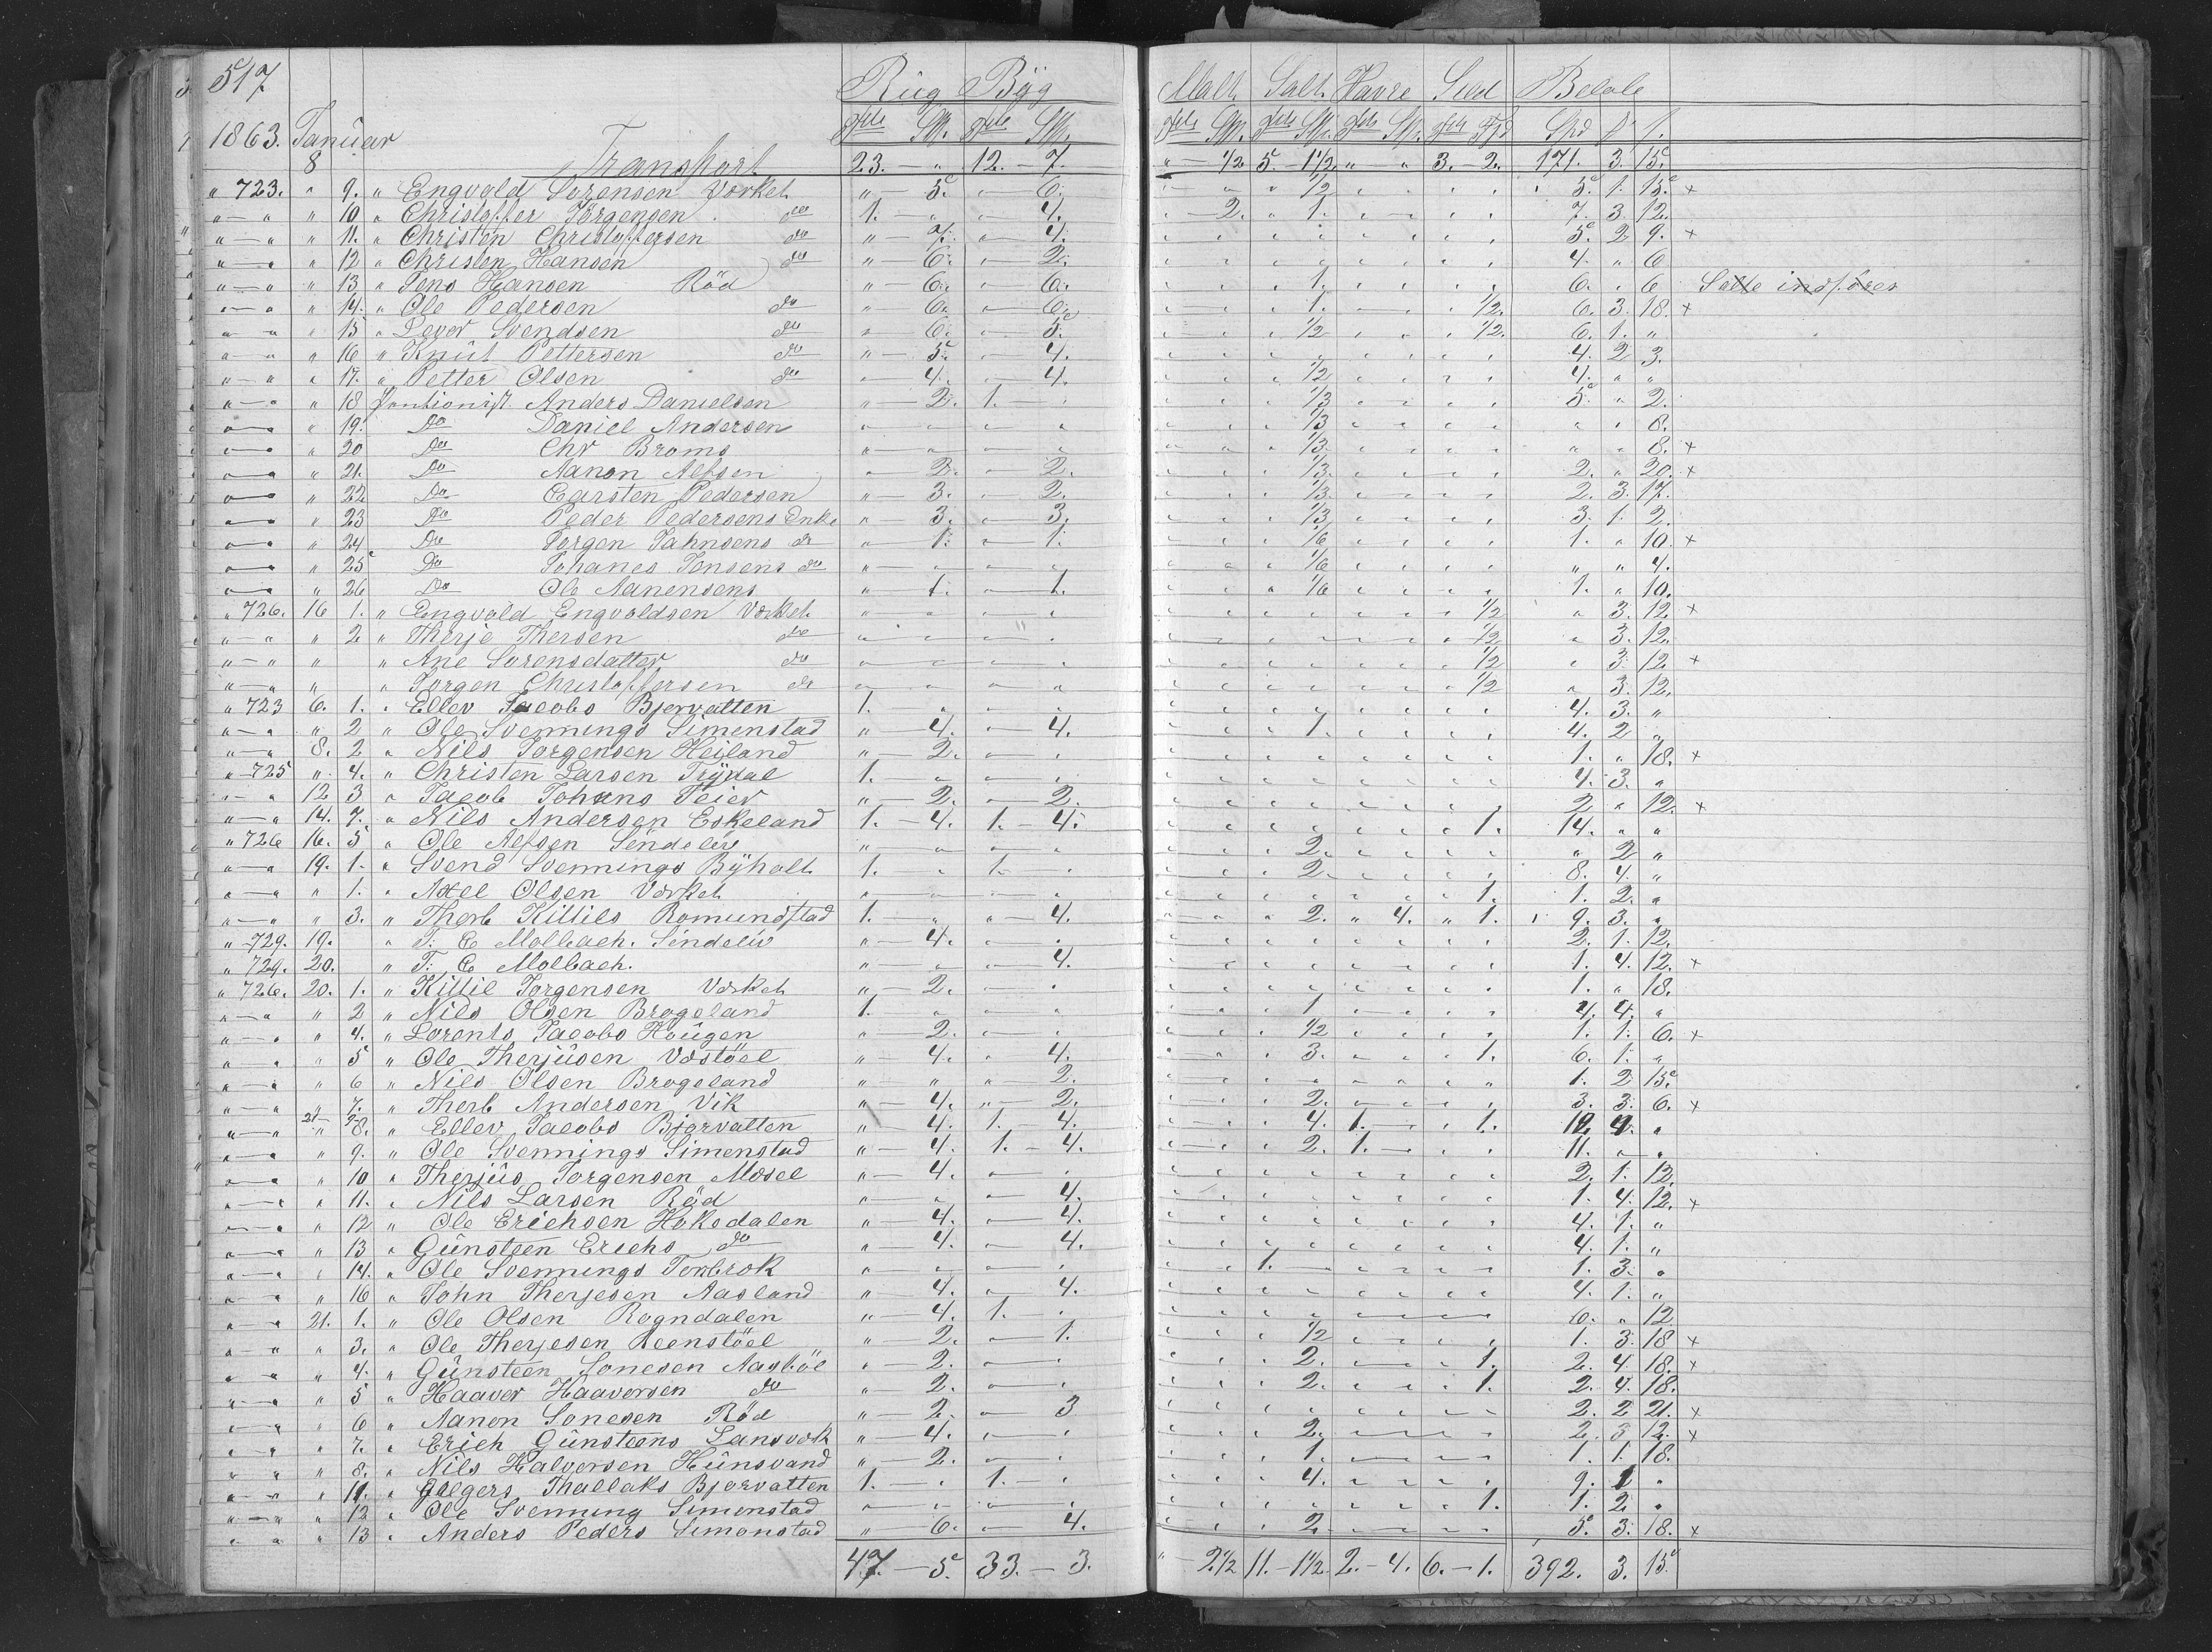 517 Rüg Byg Malt Salt Havre Sild Beløb
1863. Januar Tdr Skp. Tdr Skp. Tdr Skp. Tdr Skp. Tdr Skp. Spd
8 Transport 23. — " 12. — 7. " — 1/2 5 — 1 1/2 " " 3. — 2. 171. 3. 15
" 723. " 9. " Engvald Sørensen Værket " — 5. " — 6. 1/2 5. 1. 15. ×
" — " " 10 " Christoffer Jørgensen do 1. — " " — 4. 2. " 1. 7. 3. 12.
" — " " 11. " Christen Christoffersen do " — 7. " — 4. 5. 2 9. ×
" — " " 12 " Christen Hansen do " — 6. " — 2. 4. " 6
" — " " 13 " Jens Hansen Röd " — 6. " — 6. 1. 6. " 6 Salte indføres
" — " " 14. " Ole Pedersen do " 6. — 6. 1. 1/2. 6. 3. 18. ×
" " " 15 " Lever Svendsen do " 6. — 5. 1/2 1/2. 6. 1. "
" — " " 16 " Knut Pettersen do " — 5. " — 4. 4. 2 3.
" — " " 17. " Petter Olsen do " — 4. — 4. 1/2 4. " "
" — " " 18 Pentionist. Anders Danielsen " — 2. 1. — 1/3 5. " 2.
" — " " 19. Do Daniel Andersen 1/3 " " 8.
" — " " 20 Do Chr Broms 1/3 " " 8. ×
" — " " 21. Do Aanon Alfsen " — 2. " — 2. 1/3. 2. " 20. ×
" — " " 22 Do Carsten Pedersen " — 3. " 2. 1/3 2. 3. 17.
" — " " 23 Do Peder Pedersens Enke " — 3. — 3. 1/3 3. 1. 2.
" — " " 24 Do Jørgen Jahnsens do " — 1. — 1. 1/6 1. " 10. ×
" — " " 25 Do Johanes Jensens do 1/6 " " 4.
" — " " 26 Do Ole Aanensens " 1. — 1. 1/6 1. " 10.
" 726. 16 1. " Engvold Engvoldsen Værket 1/2 " 3. 12 ×
" — " " 2 " Therje Thersen do 1/2 " 3. 12.
" — " " " Ane Sørensdatter do 1/2 " 3. 12 ×
" — " " " Jørgen Christoffersen do 1/2 " 3. 12.
" 723 6. 1. " Ellev Jacobs Bjervatten 1. 4. 3. "
" — " " 2 " Ole Svennings Simenstad " — 4. — 4. 1. 4. 2 "
" — " 8. 2 " Nils Jørgensen Heiland " — 2. 1. " 18. ×
" — 725 " 4. " Christen Larsen Trydal 1. 4. 3. "
" — " 12 3 " Jacob Johans Feier " — 2. — 2. 2 " 12. ×
" — " 14. 7. " Nils Andersen Eskeland 1. — 4. 1. — 4. 1. 14. " "
" 726 16. 5 " Ole Alfsen Söndeløv 2. " 2 "
" — " 19. 1. " Svend Svennings Byholt 1. 1. 2. 8. 4. "
" — " " 1. " Axel Olsen Værket 1. 1. 2. "
" — " " 3. " Therb Killils Romundstad 1. " " — 4. 2. " 4. " 1. 9. 3. "
" 729. 19. " T: C Molbach. Söndeløv " — 4. 2. 1. 12.
" 729. 20. " T: C Molbach. " — " — 4. 1. 4. 12. ×
" 726. 20. 1. " Killil Jørgensen Værket " — 2. 1. " 18.
" — " " 2 " Nils Olsen Brogeland 1. 1 4. 4. "
" — " " 4. " Lorents Jacobs Hougen " 2. 1/2 1. 1. 6. ×
" " " 5 " Ole Therjusen Væstöel " — 4. " 4. 3. 1. 6. 1. "
" — " " 6 " Nils Olsen Brogeland " " " 2. 1. 2 15.
" — " " 7. " Therb Andersen Vik " — 4. " — 2. 2. 3. 3. 6. ×
" — " 21 8. " Ellev Jacobs Bjørvatten " — 4. 1. 4. 4. 1. 1. 12. 4. "
" — " " 9. " Ole Svennings Simenstad " — 4. 1. — 4. 2. 1. 11. " "
" — " " 10 " Therjus Jørgensen Mosel " — 4. 2. 1. 12.
" — " " 11. " Nils Larsen Röd 4. 1. 4. 12. ×
" — " " 12 " Ole Erichsen Hoksdalen " — 4. — 4. 4. 1. "
" — " " 13 " Günsteen Erichs do " 4. — 4. 4. 1. "
" — " " 14. " Ole Svennings Torbrok 1. 1. 3. "
" — " " 16 " John Therjesen Aasland " 4. — 4. 4. 1. "
" — " 21. 1. " Ole Olsen Rogndalen " 4. 1. 6. " 12
" — " " 3. " Ole Therjesen Reenstöel " — 2. — 1. 1/2 1. 3. 18 ×
" " " 4. " Günsteen Sonesen Aasböe " — 2. 2. 1. 2. 4. 18. ×
" — " " 5 " Haaver Haaversen do " 2. 2. 1. 2. 4. 18.
" — " " 6 " Aanon Sonesen Röd " — 2. — 3 2. 2 21. ×
" — " " 7. " Erich Günsteens Lansvæk " — 4. 2. 2. 3 12. ×
" " " 8. " Nils Halvorsen Hünsvand " — 2. 1. 1. 1. 18.
" — " " 11. " Aalgers Thallaks Bjorvatten 1. 1. 4. 9. 1 "
" — " " 12 " Ole Svenning Simonstad 1. 1. 2. "
" " " 13 " Anders Peders Simonstad " 6. — 4. 2. 5. 3. 18. ×
47. — 5. 33. — 3. " — 2 1/2 11. — 1 1/2 2. — 4. 6. — 1. 392. 3. 15